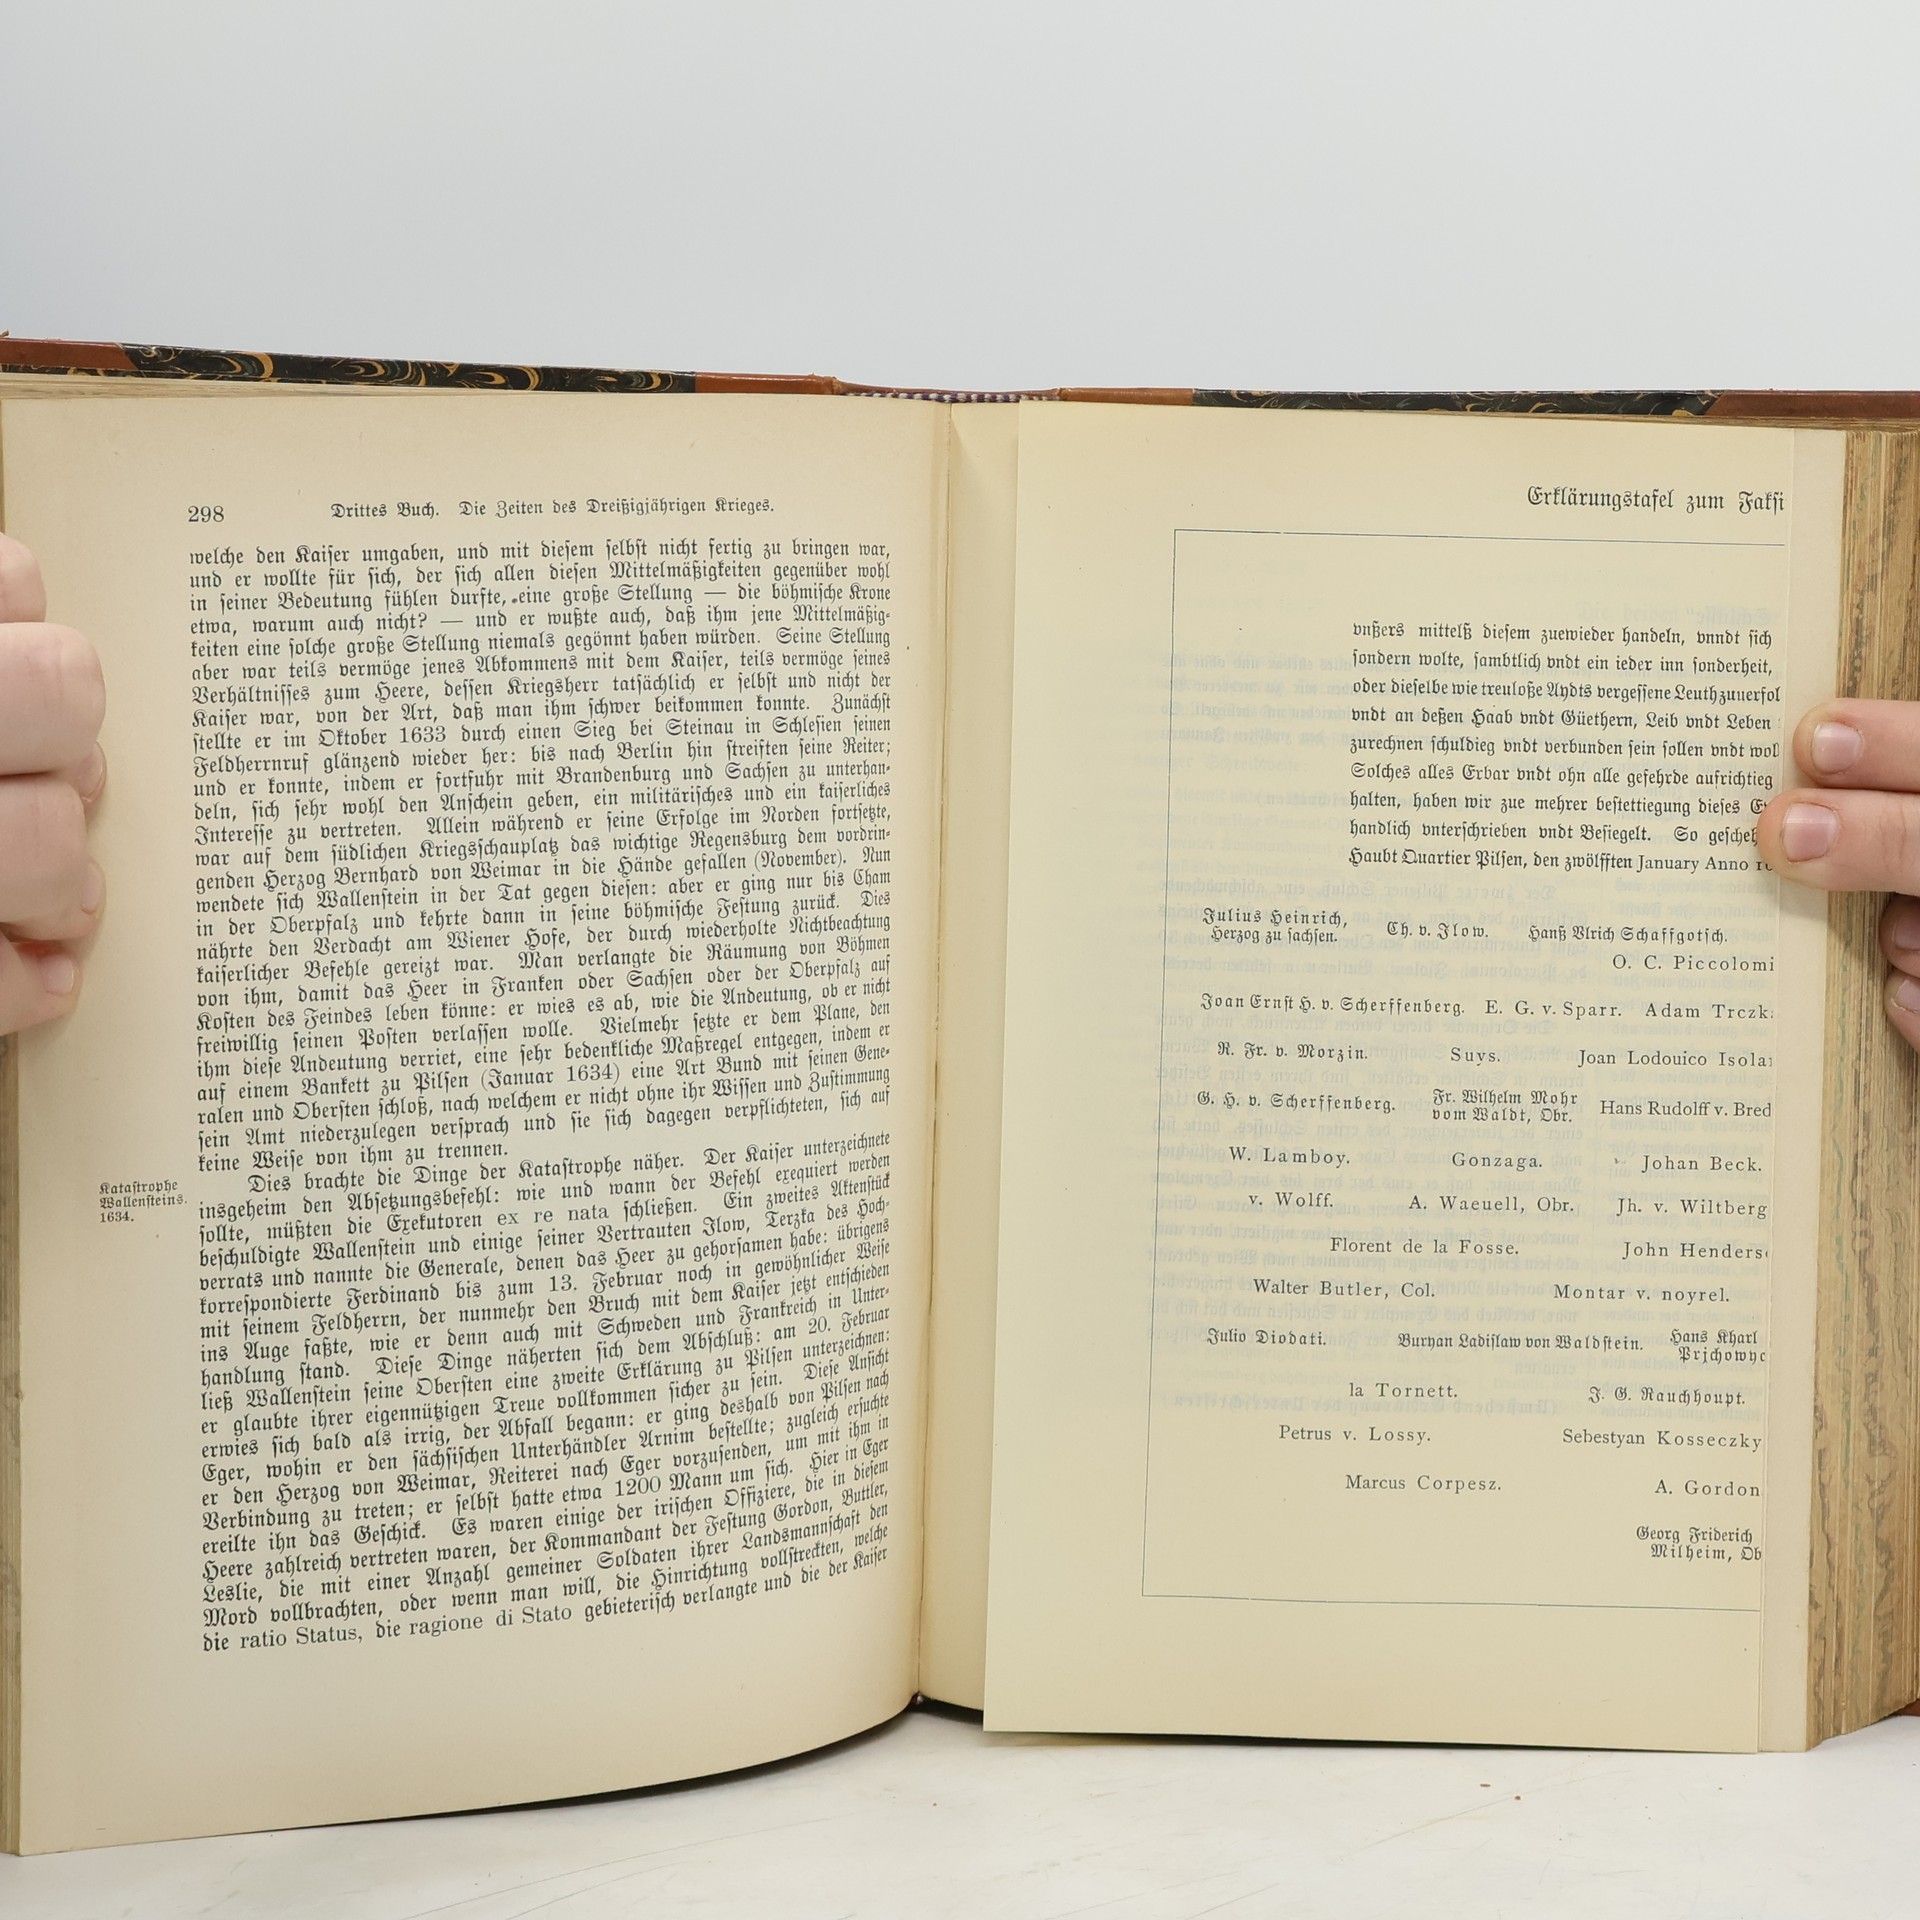 298 Drittes Buch. Die Zeiten des Dreißigjährigen Krieges.
welche den Kaiser umgaben, und mit diesem selbst nicht fertig zu bringen war,
und er wollte für sich, der sich allen diesen Mittelmäßigkeiten gegenüber wohl
in seiner Bedeutung fühlen durfte, eine große Stellung — die böhmische Krone
etwa, warum auch nicht? — und er wußte auch, daß ihm jene Mittelmäßig-
keiten eine solche große Stellung niemals gegönnt haben würden. Seine Stellung
aber war teils vermöge jenes Abkommens mit dem Kaiser, teils vermöge seines
Verhältnisses zum Heere, dessen Kriegsherr tatsächlich er selbst und nicht der
Kaiser war, von der Art, daß man ihm schwer beikommen konnte. Zunächst
stellte er im Oktober 1633 durch einen Sieg bei Steinau in Schlesien seinen
Feldherrnruf glänzend wieder her: bis nach Berlin hin streiften seine Reiter;
und er konnte, indem er fortfuhr mit Brandenburg und Sachsen zu unterhan-
deln, sich sehr wohl den Anschein geben, ein militärisches und ein kaiserliches
Interesse zu vertreten. Allein während er seine Erfolge im Norden fortsetzte,
war auf dem südlichen Kriegsschauplatz das wichtige Regensburg dem vordrin-
genden Herzog Bernhard von Weimar in die Hände gefallen (November). Nun
wendete sich Wallenstein in der Tat gegen diesen: aber er ging nur bis Cham
in der Oberpfalz und kehrte dann in seine böhmische Festung zurück. Dies
nährte den Verdacht am Wiener Hofe, der durch wiederholte Nichtbeachtung
kaiserlicher Befehle gereizt war. Man verlangte die Räumung von Böhmen
von ihm, damit das Heer in Franken oder Sachsen oder der Oberpfalz auf
Kosten des Feindes leben könne: er wies es ab, wie die Andeutung, ob er nicht
freiwillig seinen Posten verlassen wolle. Vielmehr setzte er dem Plane, den
ihm diese Andeutung verriet, eine sehr bedenkliche Maßregel entgegen, indem er
auf einem Bankett zu Pilsen (Januar 1634) eine Art Bund mit seinen Gene-
ralen und Obersten schloß, nach welchem er nicht ohne ihr Wissen und Zustimmung
sein Amt niederzulegen versprach und sie sich dagegen verpflichteten, sich auf
keine Weise von ihm zu trennen.
Katastrophe
Wallensteins.
1634.
Dies brachte die Dinge der Katastrophe näher. Der Kaiser unterzeichnete
insgeheim den Absetzungsbefehl: wie und wann der Befehl exequiert werden
sollte, müßten die Exekutoren ex re nata schließen. Ein zweites Aktenstück
beschuldigte Wallenstein und einige seiner Vertrauten Ilow, Terzka des Hoch-
verrats und nannte die Generale, denen das Heer zu gehorsamen habe: übrigens
korrespondierte Ferdinand bis zum 13. Februar noch in gewöhnlicher Weise
mit seinem Feldherrn, der nunmehr den Bruch mit dem Kaiser jetzt entschieden
ins Auge faßte, wie er denn auch mit Schweden und Frankreich in Unter-
handlung stand. Diese Dinge näherten sich dem Abschluß: am 20. Februar
ließ Wallenstein seine Obersten eine zweite Erklärung zu Pilsen unterzeichnen:
er glaubte ihrer eigennützigen Treue vollkommen sicher zu sein. Diese Ansicht
erwies sich bald als irrig, der Abfall begann: er ging deshalb von Pilsen nach
Eger, wohin er den sächsischen Unterhändler Arnim bestellte; zugleich ersuchte
er den Herzog von Weimar, Reiterei nach Eger vorzusenden, um mit ihm in
Verbindung zu treten; er selbst hatte etwa 1200 Mann um sich. Hier in Eger
ereilte ihn das Geschick. Es waren einige der irischen Offiziere, die in diesem
Heere zahlreich vertreten waren, der Kommandant der Festung Gordon, Buttler,
Leslie, die mit einer Anzahl gemeiner Soldaten ihrer Landsmannschaft den
Mord vollbrachten, oder wenn man will, die Hinrichtung vollstreckten, welche
die ratio Status, die ragione di Stato gebieterisch verlangte und die der Kaiser
Erklärungstafel zum Faksi
vnßers mittelß diesem zuewieder handeln, vnndt sich
sondern wolte, sambtlich vndt ein ieder inn sonderheit,
oder dieselbe wie treuloße Aydts vergessene Leuth zuuerfol
vndt an deßen Haab vndt Güethern, Leib vndt Leben
zurechnen schuldieg vndt verbunden sein sollen vndt wol
Solches alles Erbar vndt ohn alle gefehrde aufrichtieg
halten, haben wir zue mehrer bestettiegung dieses
handlich vnterschrieben vndt Besiegelt. So gescheh
Haubt Quartier Pilsen, den zwölfften January Anno
Julius Heinrich, Ch. v. Ilow. Hanß Vlrich Schaffgotsch.
Herzog zu sachsen.
O. C. Piccolomi
Joan Ernst H. v. Scherffenberg. E. G. v. Sparr. Adam Trczk
R. Fr. v. Morzin. Suys. Joan Lodouico Isola
G. H. v. Scherffenberg. Fr. Wilhelm Mohr Hans Rudolff v. Bred
vom Waldt, Obr.
W. Lamboy. Gonzaga. Johan Beck.
v. Wolff. A. Waeuell, Obr. Jh. v. Wiltberg
Florent de la Fosse. John Henders
Walter Butler, Col. Montar v. noyrel.
Julio Diodati. Buryan Ladislaw von Waldstein. Hans Kharl
Przichowyc
la Tornett. J. G. Rauchhoupt.
Petrus v. Lossy. Sebestyan Kosseczky
Marcus Corpesz. A. Gordon
Georg Friderich
Milheim, Ob